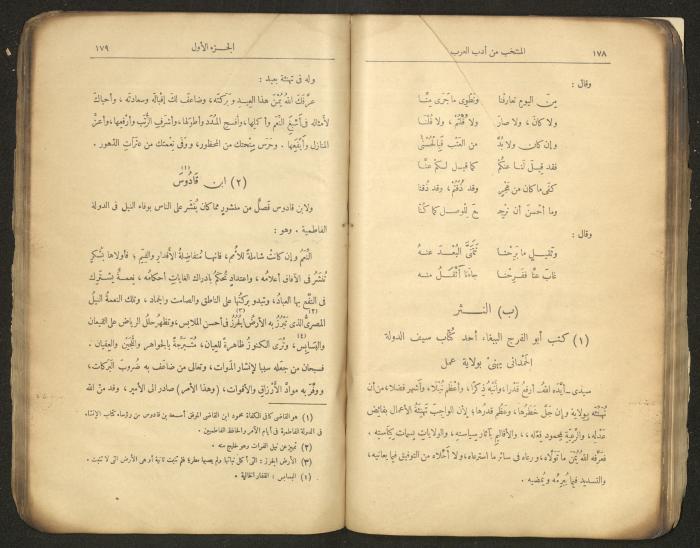 ١٧٨
المنتخب من أدب العرب
وقال :
مِنَ اليوم تعارفنا ونَطْوِى ما جَرَى مِنَّا
ولا كان ، ولا صار ولا قُلْتُمْ ، ولا قُلْنَا
وإن كان ولا بُدَّ من العَتْبِ فَبِالْحُسْنَى
فقد قيل لنا عنكُمْ كما قيل لكم عنَّا
كفى ما كان من هَجْرٍ وقد ذُقْتُمْ ، وقد ذُقنا
وما أحسنَ أن نرجـ ـعَ للوصل كما كُنَّا
وقال :
وثقيلٍ ما بَرِحْنَا نَتَمَنَّى البُعْدَ عنهُ
غابَ عنَّا ففرِحْنا جاءَنا أثْقَلُ منهُ
(ب) النثر
(١) كتب أبو الفرج الببغاء أحد كُتَّاب سيف الدولة
الحَمْدانى يهنئ بولاية عمل
سيدى ـ أيَّده اللهُ ـ أرفعُ قَدْرا، وأنْبَهُ ذِكْرًا، وأعْظَم نُبْلا، وأشهر فضلا، من أن
نُهَنِّئَه بولايةٍ وإن جلَّ خَطَرُها، وعظُم قدرُها؛ لأن الواجب تَهْنِئةُ الأعمال بفائض
عَدْله، والرعِيَّة بمحمود فعْله، والأقاليم بآثار سياسته، والولايات بسِمات رياسته.
فعرَّفه اللهُ يُمْنَ ما تولَّاه، ورعاه فى سائر ما استرعاه، ولا أخلاه من التوفيق فيما يعانيه،
والتسديد فيما يُبْرِمُه ويُمضيه .
الجزء الأول
١٧٩
وله فى تهنئة بعيد :
عرَّفك اللهُ يُمْنَ هذا العيد و بَرَكتَه، وضاعَف لك إقبالَه وسعادتَه ، وأحياك
لأمثاله فى أسْبَغ النِّعَم وأكملِها، وأفسح المُدَد وأطولها، وأشرف الرُّتَب وأرفعِها، وأعزِّ
المنازل وأيفَعِها . وحَرَس مِنْحتَك من المحظور، ووَقَى نِعْمتَك من عَثَرات الدهور .
(٢) ابن قادُوس (١)
ولابن قادوس فَصْلٌ من منشورٍ مما كان يُنْشَر على الناس بوفاء النيل فى الدولة
الفاطمية . وهو :
النِّعَمُ وإن كانتْ شاملةً للأُمم، فانها مُتفاضِلةُ الأقدار والقِيَم ؛ فأولاها بشُكرٍ
تُنْشَرُ فى الآفاق أعلامُه، واعتدادٍ تُحكَمُ بادراك الغايات أحكامُه، نِعمةٌ يشترك
فى النَّفع بها العبادُ، وتبدو بركتُها على الناطق والصامت والجماد ، وتلك النعمةُ النيلُ
المصرىُّ(٢) الذى تَبْرُزُ به الأرضُ الجُرُزُ(٣) فى أحسن الملابس، وتظهر حُلَلُ الرياض على القيعان
والبسابِس(٤)، وتُرَى الكنوزُ ظاهرةً للعيان، مُتَبَرِّجةً بالجواهر واللُّجَيْن والعِقيان .
فسبحان من جعله سببا لإنشار المَوات، وتعالى من ضاعَف به ضُروبَ البَرَكات،
ووفَّر به موادَّ الأرزاق والأقوات، (وهذا الأمرُ) صادر الى الأمير ، وقد منَّ اللهُ
(١) هو القاضى كافى الكفاة محمود ابن القاضى الموفق أسعد بن قادوس من رؤساء كتاب الإنشاء
فى الدولة الفاطمية فى أيام الآمر والحافظ الفاطميين .
(٢) تمييز عن نيل الفرات وهو خليج منه .
(٣) الأرض الجرز : التى أكل نباتها ولم يصبها مطر؛ فلم تنبت ثانية أو هى الأرض التى لا تنبت .
(٤) البسابس : القفار الخالية .